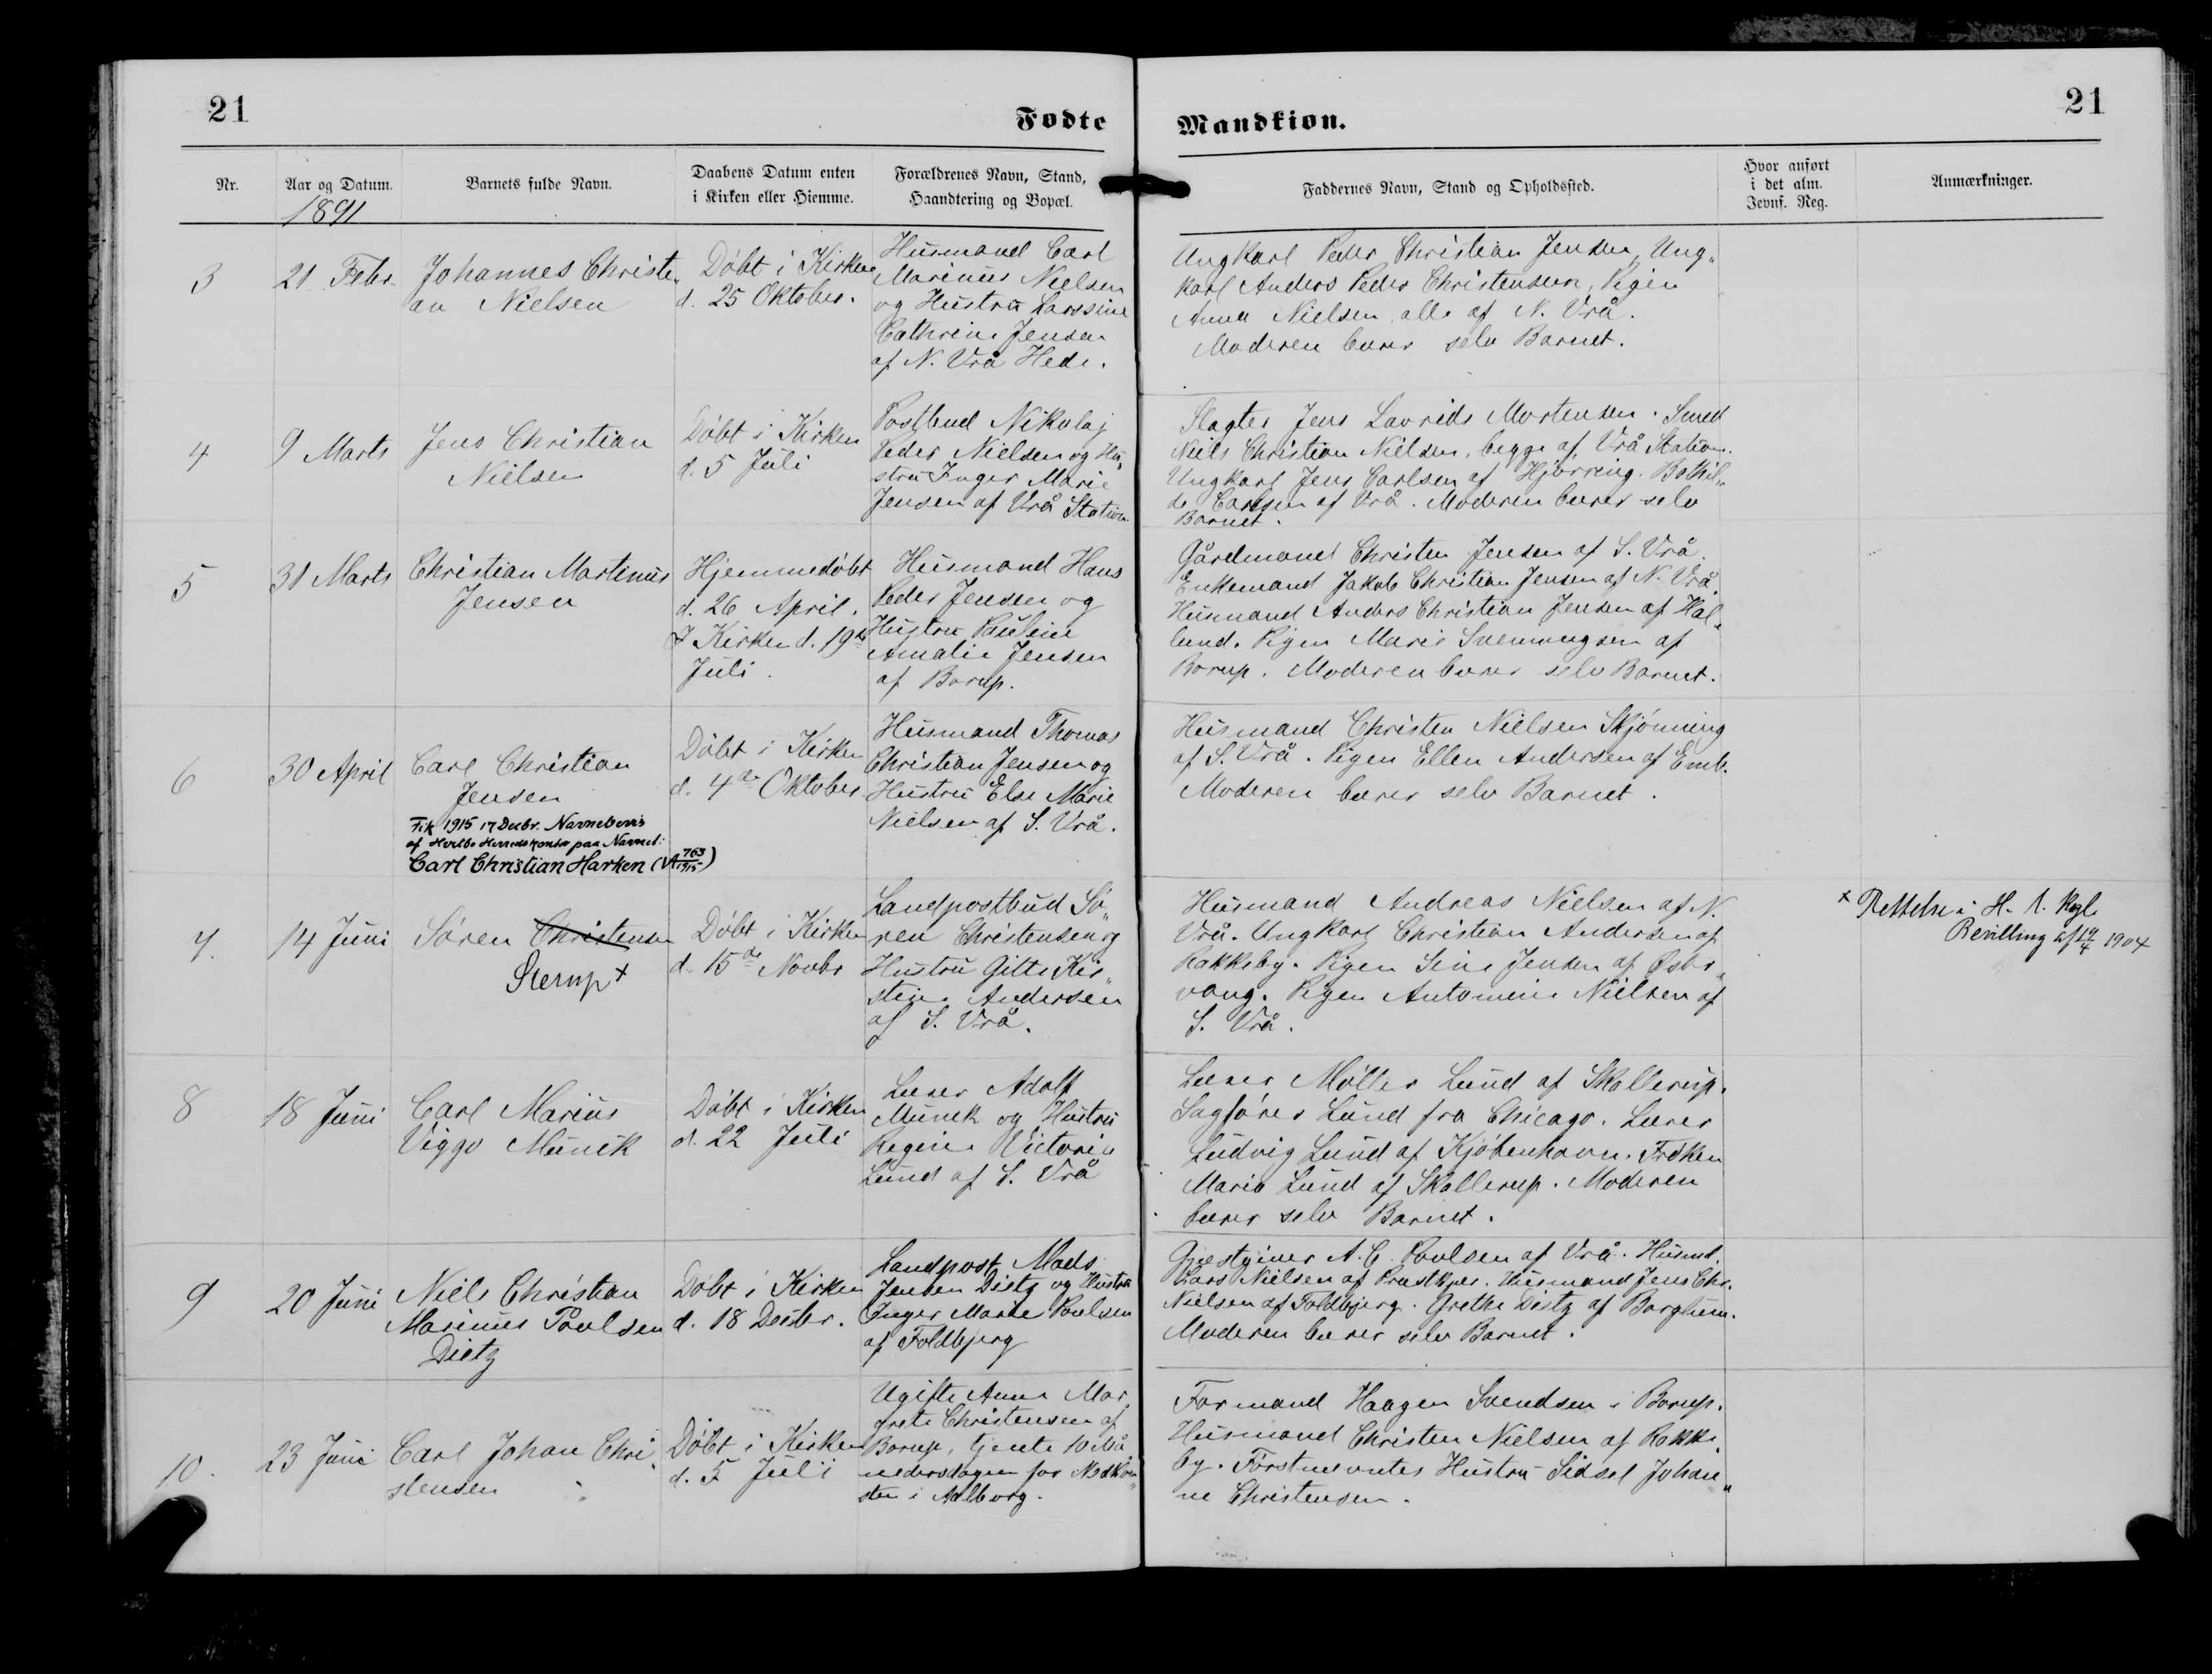 21
Fødte
Mandkiøn.
21
Nr.
Aar og Datum.
1891
Barnets fulde Navn.
Daabens Datum enten
i Kirken eller Hiemme.
Forældrenes Navn, Stand,
Haandtering og Bopæl.
Faddernes Navn, Stand og Opholdssted.
Hvor anført
i det alm.
Jevnf. Reg.
Anmærkninger.
3
21 Febr.
Johannes Christi
an Nielsen
Døbt i Kirken
d. 25 Oktober.
Husmand Carl
Marinus Nielsen
og Hustru Larssine
Cathrine Jensen
af N. Vrå Hede.
Ungkarl Peder Christian Jensen, Ung„
karl Anders Peder Christensen, Pigen
Anna Nielsen, alle af N. Vrå.
Moderen bærer selv Barnet.
4
9 Marts
Jens Christian
Nielsen
Døbt i Kirken
d. 5 Juli
Postbud Nikolaj
Peder Nielsen og Hu„
stru Inger Marie
Jensen af Vrå Station
Slagter Jens Lavrids Mortensen. Smed
Niels Christian Nielsen, begge af Vrå Station.
Ungkarl Jens Carlsen af Hjørring. Bothil„
de Carlsen af Vrå. Moderen bærer selv
Barnet.
5
31 Marts
Christian Martinus
Jensen
Hjemmedøbt
d. 26 April.
I Kirken d. 19de
Juli.
Husmand Hans
Peder Jensen og
Hustru Pauline
Amalie Jensen
af Borup.
Gårdmand Christen Jensen af S. Vrå.
Enkemand Jakob Christian Jensen af N. Vrå.
Husmand Anders Christian Jensen af Hal„
lund. Pigen Marie Svenningsen af
Borup. Moderen bærer selv Barnet.
6
30 April
Carl Christian
Jensen
Fik 1915 17 Decbr. Navnebevis
af Hvetbo Herredskontor paa Navnet:
Carl Christian Harken (A 763/1915)
Døbt i Kirken
d. 4de Oktober
Husmand Thomas
Christian Jensen og
Hustru Else Marie
Nielsen af S. Vrå.
Husmand Christen Nielsen Skjønning
af S. Vrå. Pigen Ellen Andersen af Emb.
Moderen bærer selv Barnet.
7.
14 Juni
Søren Christensen
Sterup x
Døbt i Kirken
d. 15de Novbr
Landpostbud Sø„
ren Christensen og
Hustru Gitte Kir„
stine Andersen
af S. Vrå.
Husmand Andreas Nielsen af N.
Vrå. Ungkarl Christian Andersen af
Rakkeby. Pigen Sine Jensen af Øster„
vang. Pigen Antomine Nielsen af
S. Vrå.
x Rettelse i H. t. Kgl.
Bevilling af 19/4 1904
8
18 Juni
Carl Marius
Viggo Munck
Døbt i Kirken
d. 22 Juli
Lærer Adolf
Munck og Hustru
Regine Victoria
Lund af S. Vrå
Lærer Møller Lund af Skallerup.
Sagfører Lund fra Chicago. Lærer
Ludvig Lund af Kjøbenhavn. Frøken
Maria Lund af Skallerup. Moderen
bærer selv Barnet.
9
20 Juni
Niels Christian
Marinus Poulsen
Dietz
Døbt i Kirken
d. 18 Decbr.
Landpost Mads
Jensen Dietz og Hustru
Inger Marie Poulsen
af Foldbjerg
Gjæstgiver A. C. Poulsen af Vrå. Husmd.
Lars Nielsen af Præstkjær. Husmand Jens Chr.
Nielsen af Foldbjerg. Grethe Dietz af Børglum.
Moderen bærer selv Barnet.
10.
23 Juni
Carl Johan Chri„
stensen
Døbt i Kirken
d. 5 Juli
Ugifte Anne Mar„
grete Christensen af
Borup, tjente 10 Må
nedersdagen for Nedkom„
sten i Aalborg.
Formand Haagen Svendsen i Borup.
Husmand Christen Nielsen af Rakke„
by. Hustru Sidsel Johan„
ne Christensen.